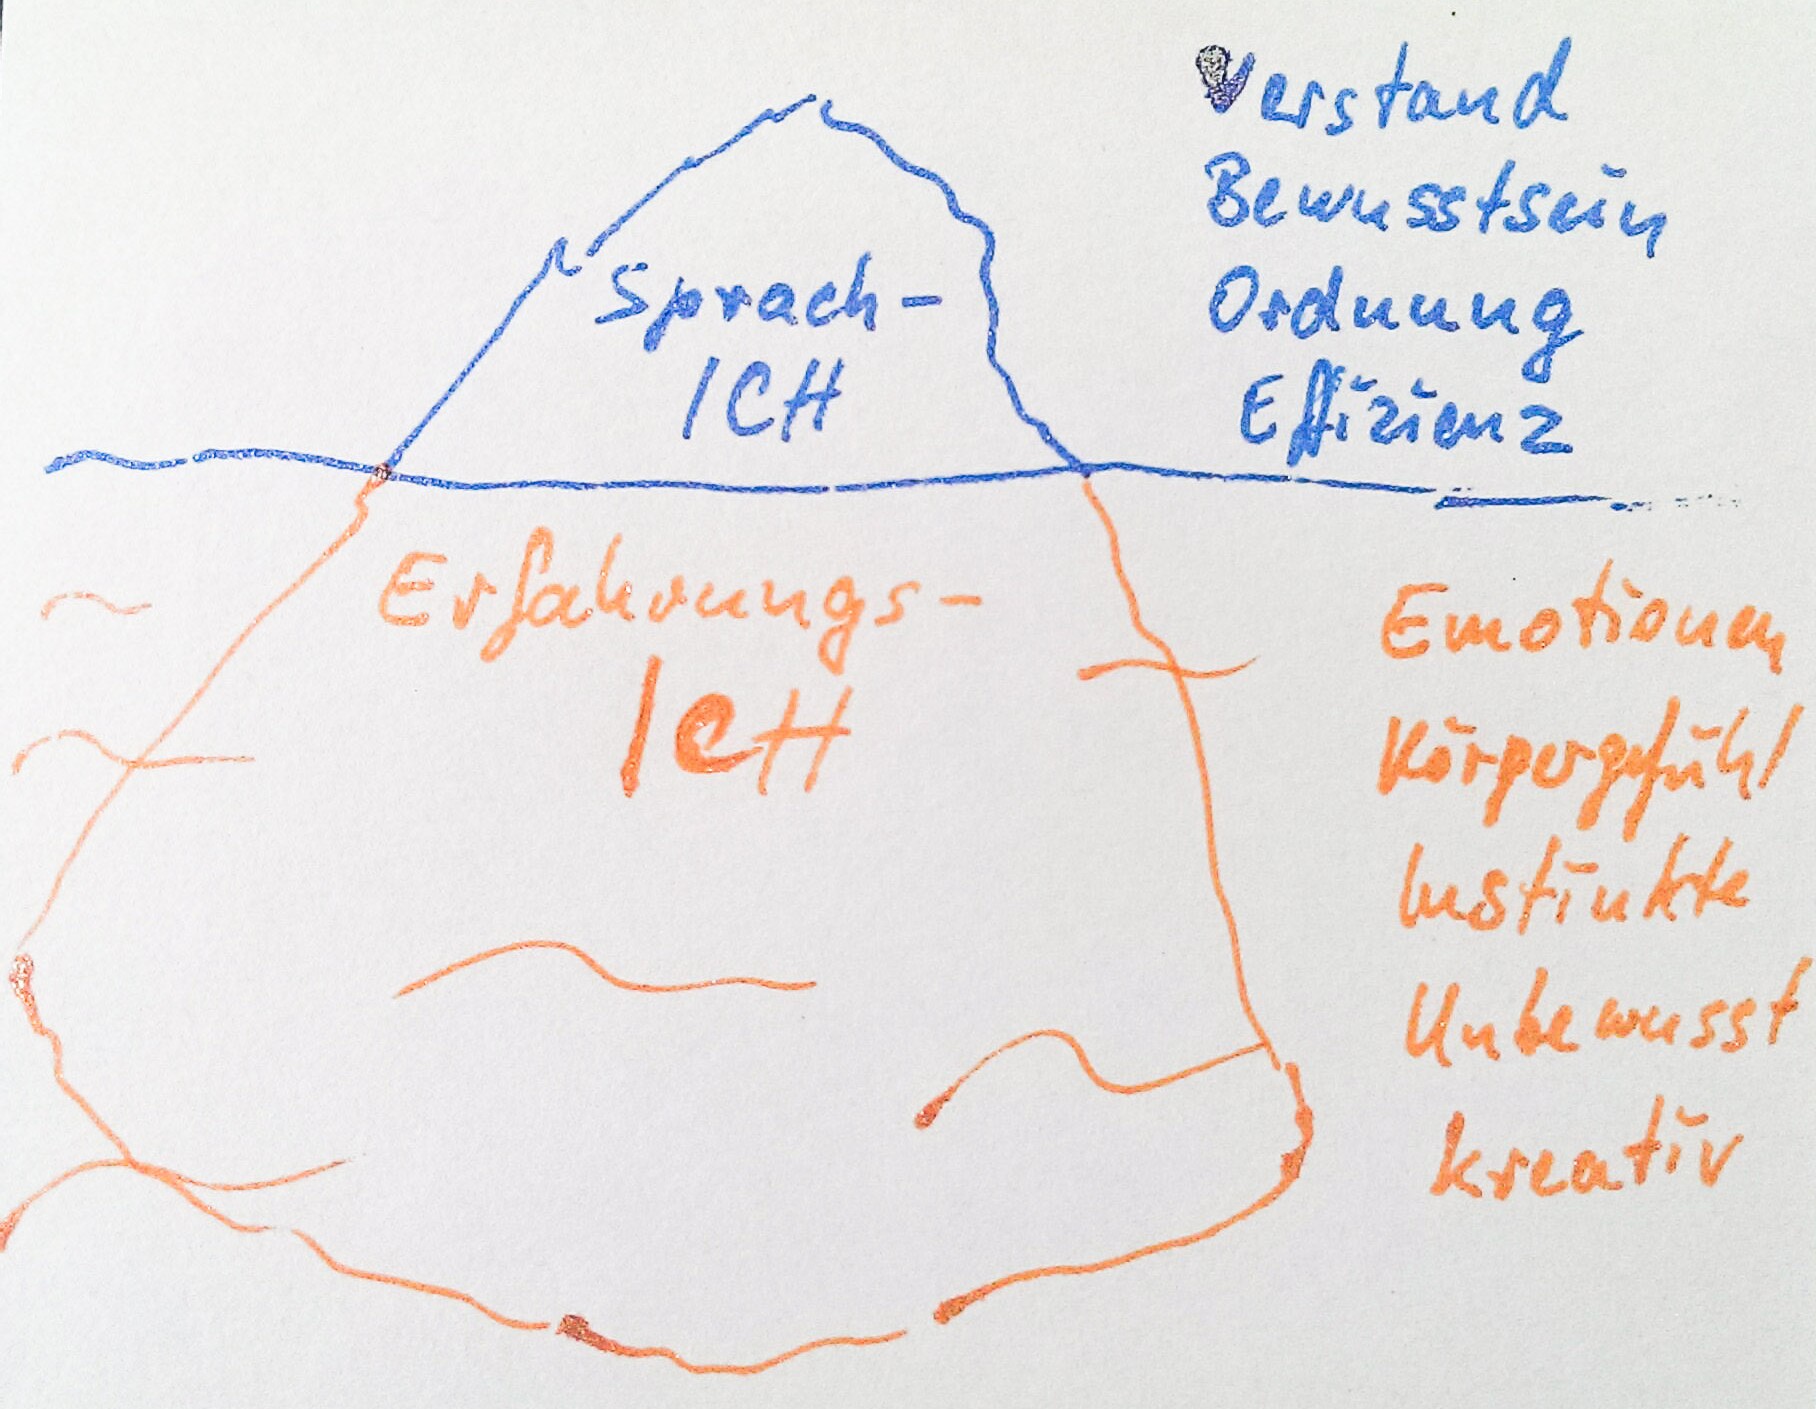 Verstand
Bewusstsein
Ordnung
Effizienz
Sprach-
ICH
Erfahrungs-
ICH
Emotionen
Körpergefühl
Instinkte
Unbewusst
kreativ